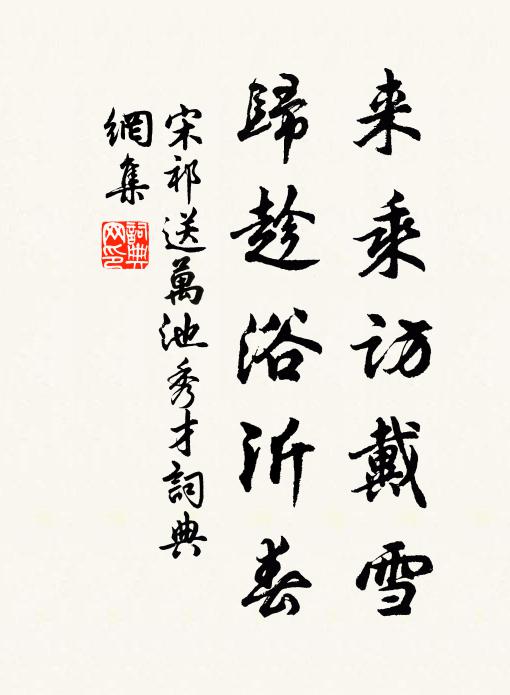 来乘訪戴雪
歸趁浴沂春
宋祁送萬池秀才詞典
網集
詞典网印